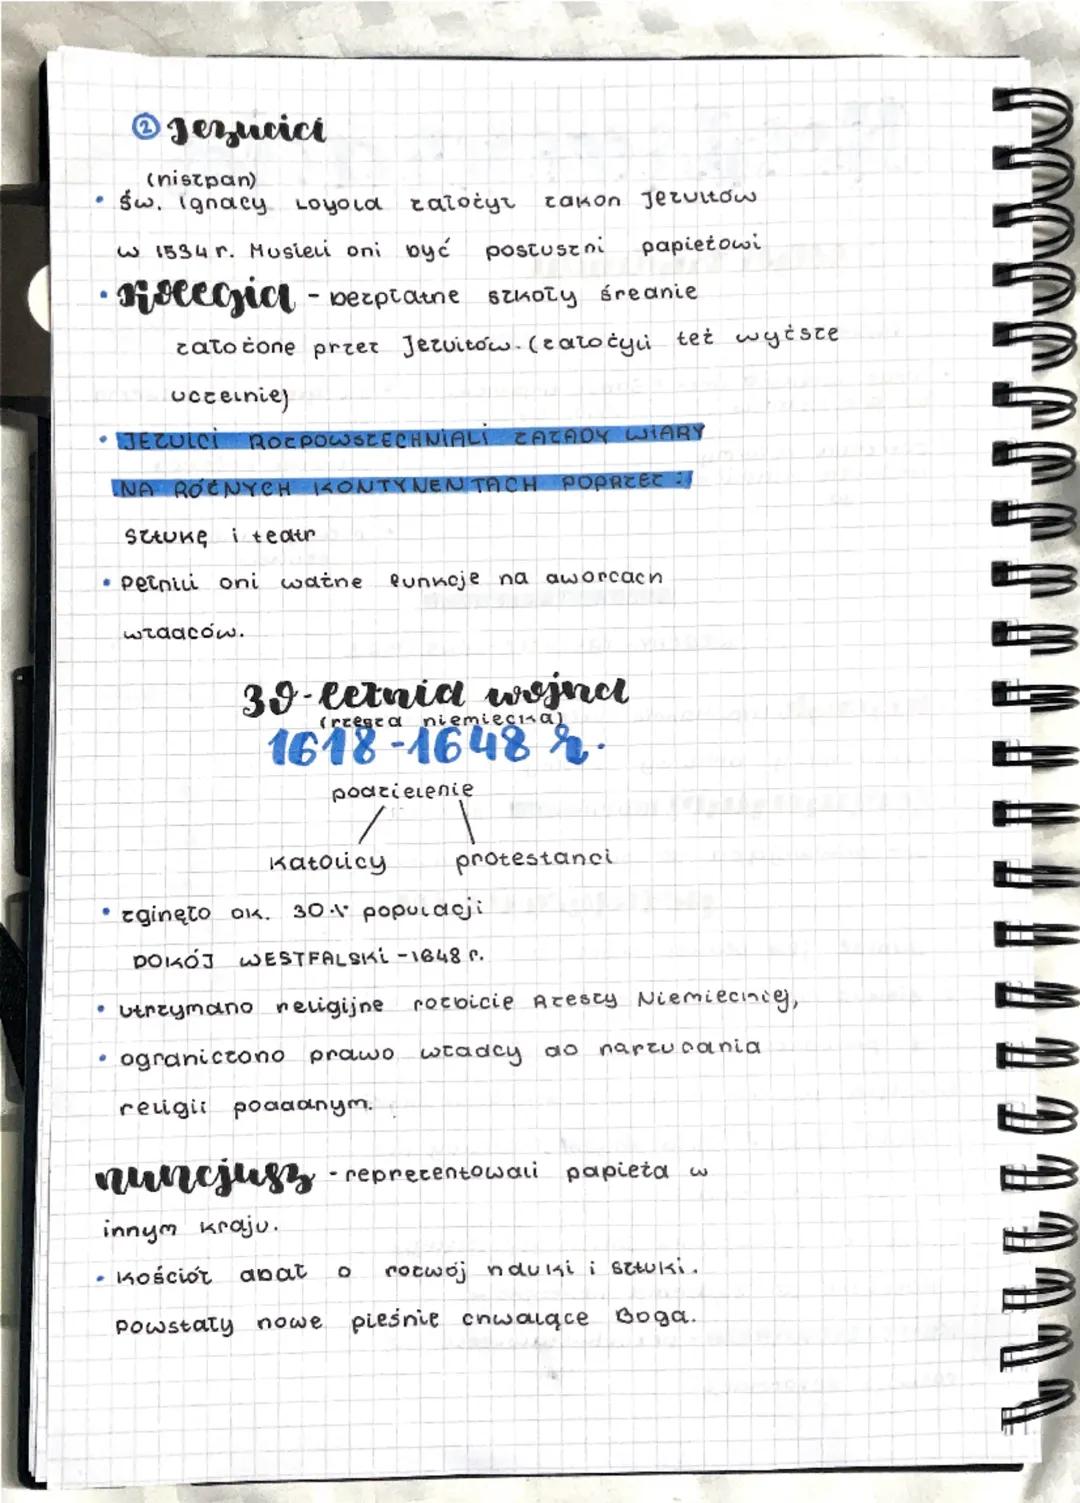 ② Jezuici
(hiszpan)
• św. Ignacy Loyola założył zakon Jezuitów
w 1534 r. Musieli oni być posłuszni papieżowi
• Kolegia - bezpłatne szkoły średnie
założone przez Jezuitów. (założyli też wyższe
uczelnie)
• JEZUICI ROZPOWSZECHNIALI ZAZADY WIARY
NA RÓŻNYCH KONTYNENTACH POPRZEZ:
sztukę i teatr
• Pełnili oni ważne funkcje na dworcach
władców.
30-letnia wojna
(rzesza niemiecka)
1618-1648 r.
podzielenie
Katolicy protestanci
• zginęło ok. 30% populacji
POKÓJ WESTFALSKI - 1648 r.
• utrzymano religijne rozbicie Rzeszy Niemieckiej,
• ograniczono prawo władcy do narzucania
religii poddanym.
nuncjusz - reprezentowali papieża w
innym kraju.
• Kościół dbał o rozwój nauki i sztuki.
Powstały nowe pieśnie chwalące Boga.